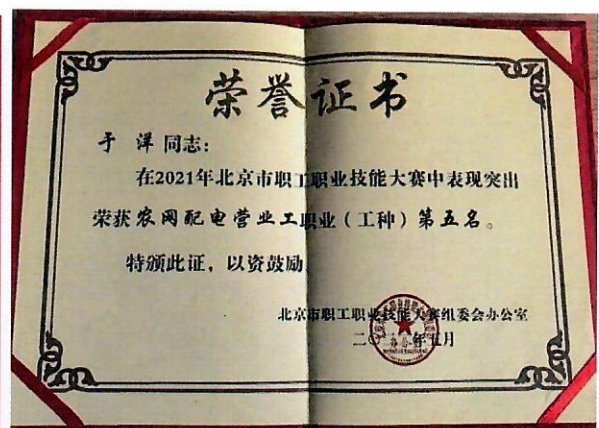 荣誉证书
于洋同志：
在2021年北京市职工职业技能大赛中表现突出
荣获农网配电营业工职业（工种）第五名。
特颁此证，以资鼓励
北京市职工职业技能大赛组委会办公室
年五月